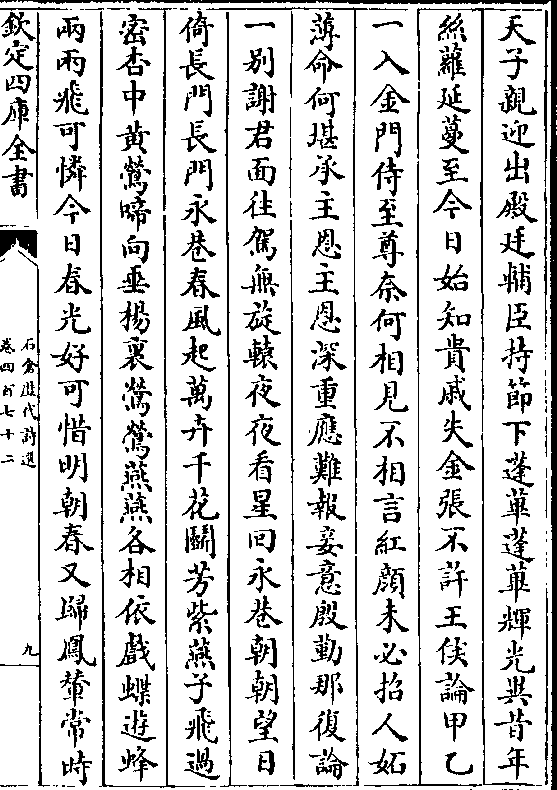 天子親迎出殿廷輔臣持節下蓬蓽蓬蓽輝光與昔年
絲蘿延蔓至今日始知貴戚失金張不許王侯論甲乙
一入金門侍至尊奈何相見不相言紅顔未必招人妬
薄命何堪承主恩主恩深重應難報妾意殷勤那復論
一别謝君面往駕無旋轅夜夜看星回永巷朝朝望日
倚長門長門永巷春風起萬卉千花鬭芳紫燕子飛過
密杏中黄鶯啼向垂楊裏鶯鶯燕燕各相依戲蝶遊蜂
兩兩飛可憐今日春光好可惜明朝春又歸鳳輦常時
欽定四庫全書
石倉歴代詩選
卷四百七十二
九